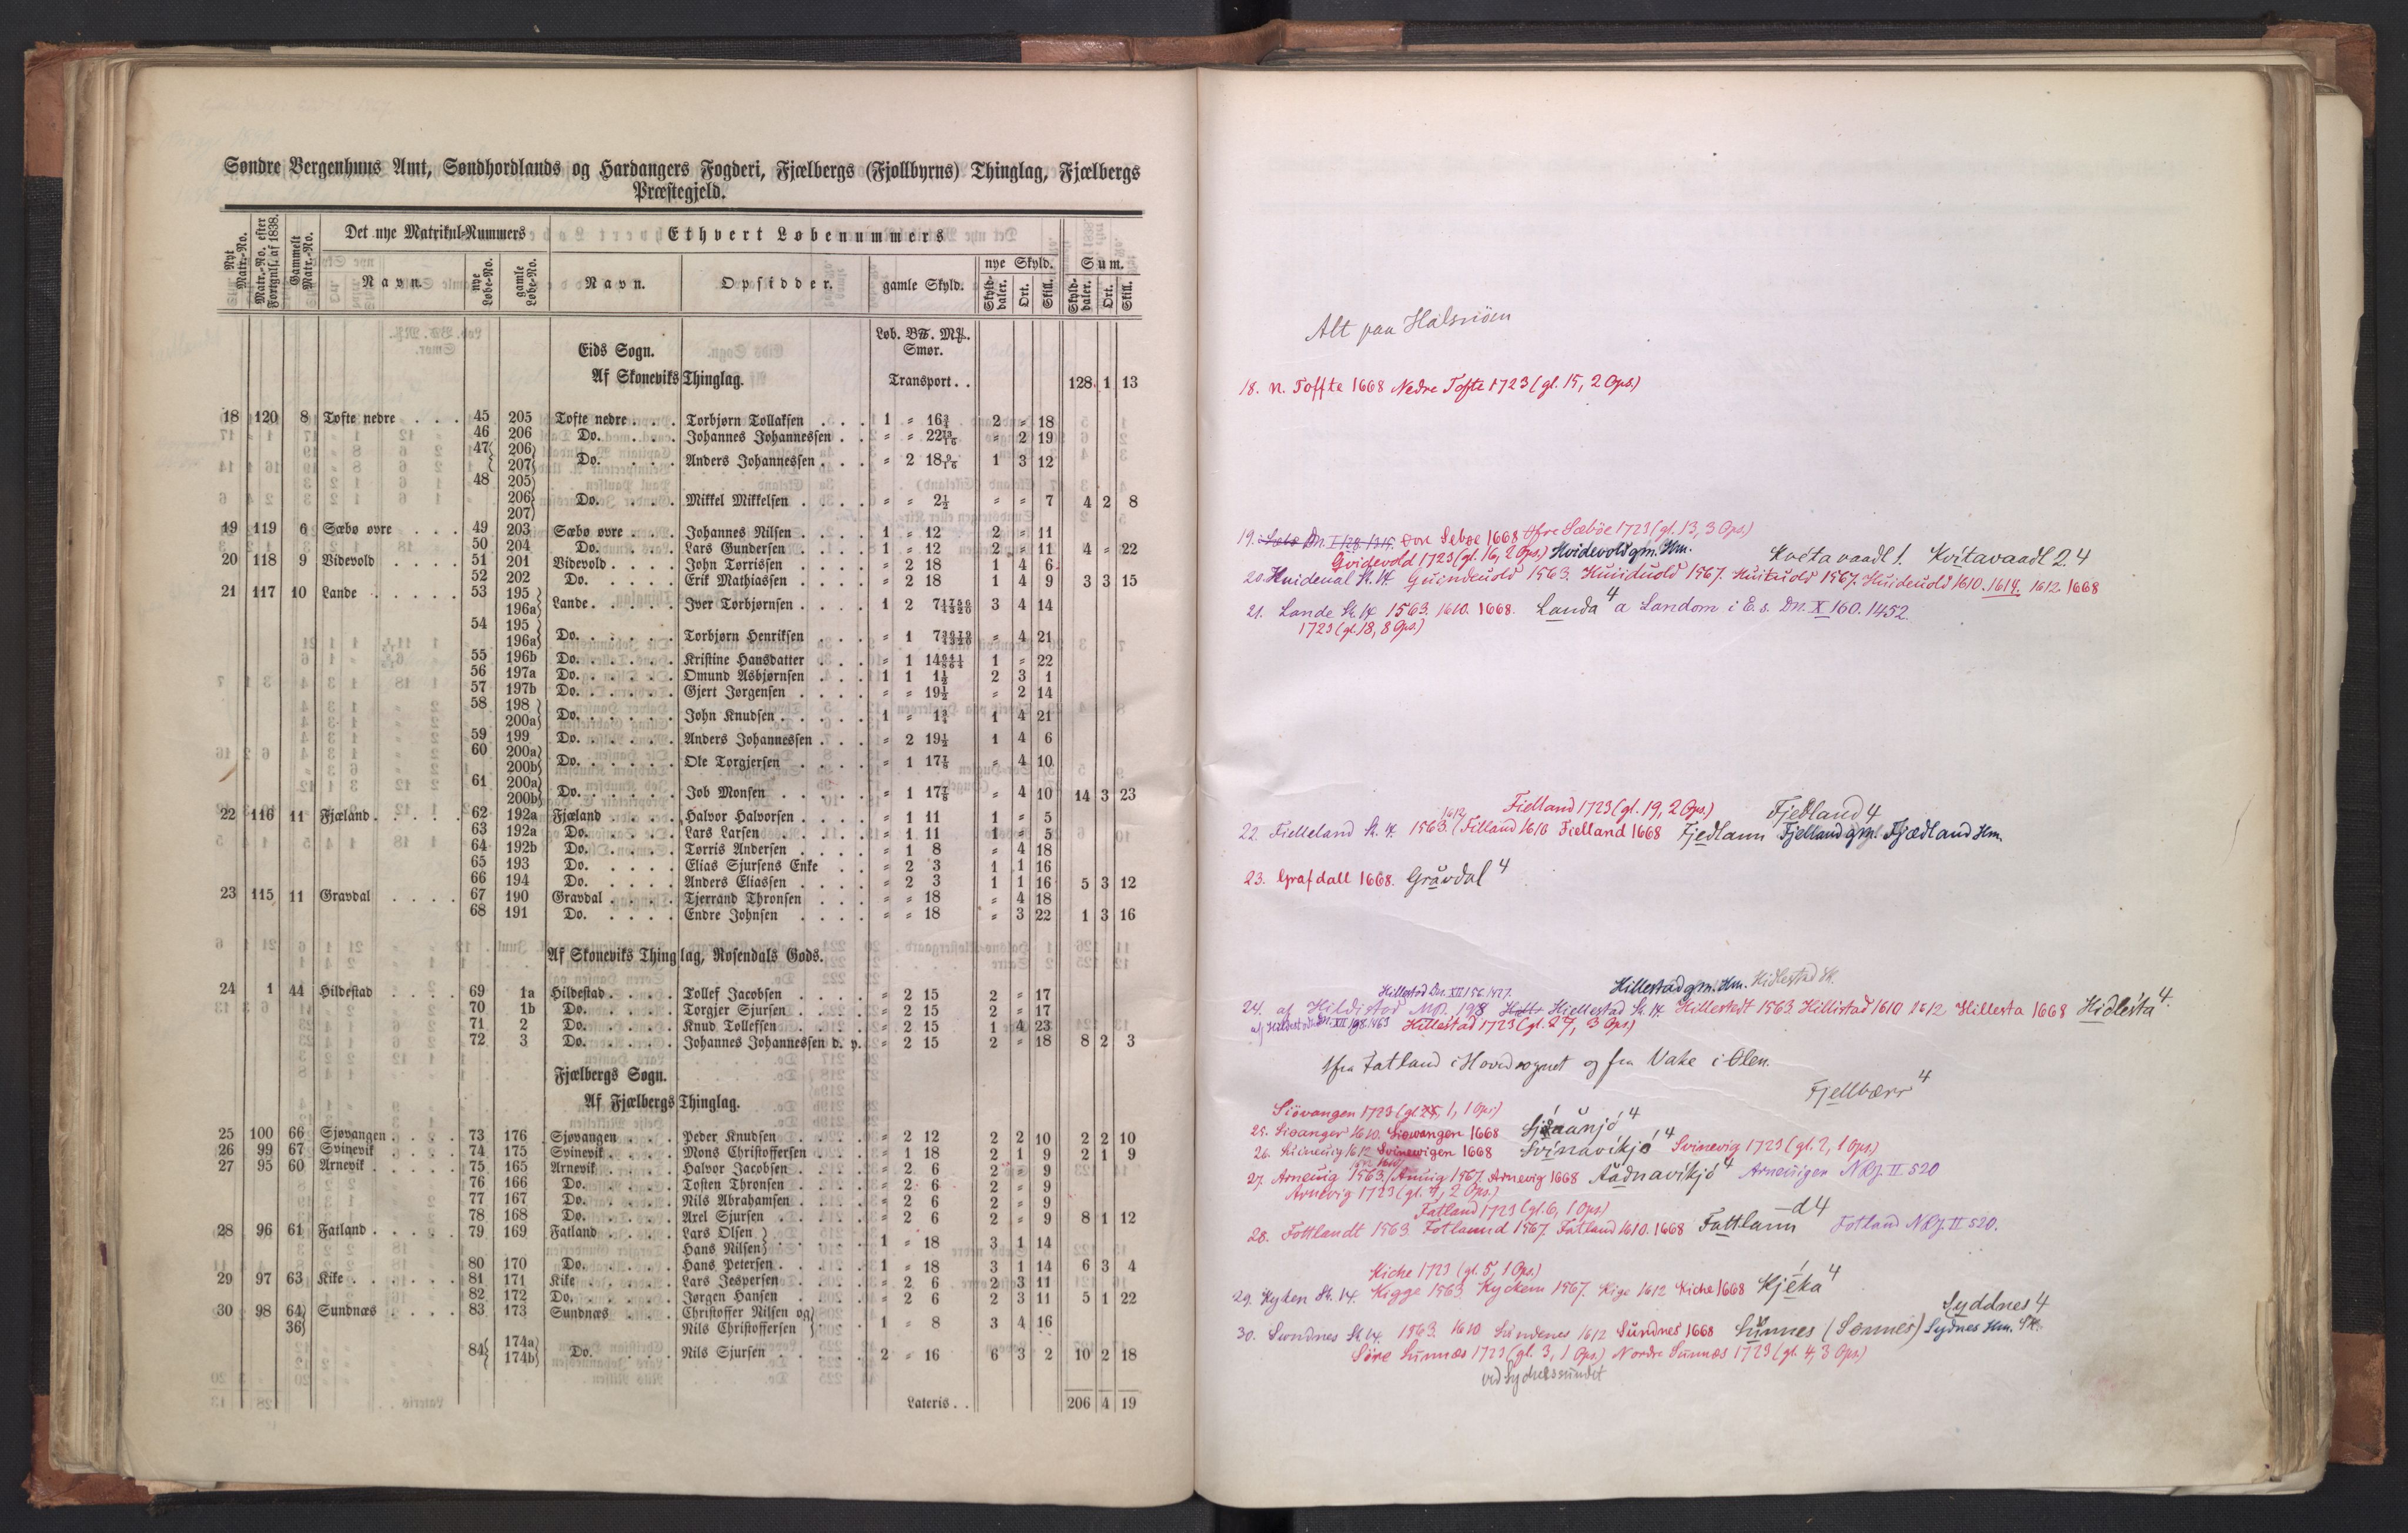 Søndre Bergenhuus Amt, Søndhordlands og Hardangers Fogderi, Fjælbergs (Fjollbyrns) Thinglag, Fjælbergs
Præstegjeld.
Nyt Matr.-No.
Matr.-No. efter Fortgnls. af 1838.
Gammelt Matr.-No.
Det nye Matrikul-Nummers
Ethvert Løbenummers
Navn.
nye Løbe-No.
gamle Løbe-No.
Navn.
Opsidder.
gamle Skyld.
nye Skyld.
Sum.
Skylddaler. Ort. Skill. Skylddaler. Ort. Skill.
Løb. B℔. M℔.
Eids Sogn. Smør.
Af Skoneviks Thinglag. Transport . . 128 1 13
18 120 8 Tofte nedre . . . 45 205 Tofte nedre . . . Torbjørn Tollaksen . . . 1 " 16¾ 2 " 18
46 206 Do. . . . Johannes Johannessen . . " " 22 13/16 " 2 19
47{ 206}
207} Do. . . . Anders Johannessen . . . " 2 18 9/16 1 3 12
48 205}
206} Do. . . . Mikkel Mikkelsen . . . . " " 2½ " " 7 4 2 8
207}
19 119 6 Sæbø øvre . . . 49 203 Sæbø øvre . . . Johannes Nilsen . . . . 1 " 12 2 " 11
50 204 Do. . . . Lars Gundersen . . . . 1 " 12 2 " 11 4 " 22
20 118 9 Videvold . . . . 51 201 Videvold . . . . John Torrissen . . . . " 2 18 1 4 6
52 202 Do. . . . . Erik Mathiassen . . . . " 2 18 1 4 9 3 3 15
21 117 10 Lande . . . . . 53 195 }
196a} Lande . . . . . Iver Torbjørnsen . . . . 1 2 7 3 4 14
54 195 }
196a} Do. . . . . . Torbjørn Henriksen . . . " 1 7 " 4 21
55 196b Do. . . . . . Kristine Hansdatter . . . " 1 14 1 " 22
56 197a Do. . . . . . Omund Asbjørnsen . . . 1 1 1½ 2 3 1
57 197b Do. . . . . . Gjert Jørgensen . . . . " " 19½ " 2 14
58 198 }
200a} Do. . . . . . John Knudsen . . . . . 1 " 1¾ 1 4 21
59 199 Do. . . . . . Anders Johannessen . . . " 2 19½ 1 4 6
60 200a}
200b} Do. . . . . . Ole Torgjersen . . . . " 1 17⅞ " 4 10
61 200a}
200b} Do. . . . . . Job Monsen . . . . . " 1 17⅞ " 4 10 14 3 23
22 116 11 Fjæland . . . . . 62 192a Fjæland . . . . Halvor Halvorsen . . . . " 1 11 1 " 5
63 192a Do. . . . . Lars Larsen . . . . . " 1 11 1 " 5
64 192b Do. . . . . Torris Andersen . . . . " 1 8 " 4 18
65 193 Do. . . . . Elias Sjursens Enke . . " 2 3 1 1 16
66 194 Do. . . . . Anders Eliassen . . . . " 2 3 1 1 16 5 3 12
23 115 11 Gravdal . . . . 67 190 Gravdal . . . . Tjerrand Thronsen . . . " " 18 " 4 18
68 191 Do. . . . . Endre Johnsen . . . . " " 18 " 3 22 1 3 16
Af Skoneviks Thinglag, Rosendals Gods.
24 1 44 Hildestad . . . . 69 1a Hildestad . . . . Tollef Jacobsen . . . . " 2 15 2 " 17
70 1b Do. . . . . Torgjer Sjursen . . . . " 2 15 2 " 17
71 2 Do. . . . . Knud Tolleffsen . . . . " 2 15 1 4 23
72 3 Do. . . . . Johannes Johannessen d. y. " 2 15 2 " 18 8 2 3
Fjælbergs Sogn.
Af Fjælbergs Thinglag.
25 100 66 Sjøvangen . . . . 73 176 Sjøvangen . . . Peder Knudsen . . . . " 2 12 2 2 10 2 2 10
26 99 67 Svinevik . . . . 74 175 Svinevik . . . . Mons Christoffersen . . . " 1 18 2 1 9 2 1 9
27 95 60 Arnevik . . . . . 75 165 Arnevik . . . . Halvor Jacobsen . . . . " 2 6 2 " 9
76 166 Do. . . . . Tosten Thronsen . . . . " 2 6 2 " 9
77 167 Do. . . . . Nils Abrahamsen . . . . " 2 6 2 " 9
78 168 Do. . . . . Axel Sjursen . . . . . " 2 6 2 " 9 8 1 12
28 96 61 Fatland . . . . . 79 169 Fatland . . . . Lars Olsen }
Hans Nilsen} . . . . . 1 " 18 3 1 14
80 170 Do. . . . . Hans Petersen . . . . . 1 " 18 3 1 14 6 3 4
29 97 63 Kike . . . . . . 81 171 Kike . . . . . Lars Jespersen . . . . " 2 6 2 3 11
82 172 Do. . . . . . Jørgen Hansen . . . . " 2 6 2 3 11 5 1 22
30 98 64} Sundnæs . . . . 83 173 Sundnæs . . . . Christoffer Nilsen og}
36} Nils Christoffersen } . . 1 " 8 3 4 16
84{ 174a}
174b} Do. . . . . Nils Sjursen . . . . . 2 " 16 6 3 2 10 2 18
Lateris . . 206 4 19
Alt paa Halsnöen
18. N. Toffte 1668 Nedre Tofte 1723 (gl. 15, 2 Ops.)
19. Sebøe 1668 Øfre Sæbøe 1723 (gl. 13, 3 Ops.)
Qvidevold 1723 (gl. 16, 2 Ops.) Hvidevold gm. Hm. Kvetavaadl 1. Kvitavaadl 2.4
20. Huideual St. 14 Quindeuold 1563. Huiiduold 1567. Huitauold 1567. Huideuold 1610. 1614. 1612 1668
21. Lande St. 14 1563. 1610. 1668. Landa 4 a Landom i E.s. Dn. X 160. 1452.
1723 (gl. 18, 8 Ops.)
Fielland 1723 (gl. 19, 2 Ops.) Fjedland 4
22. Fielleland St. 14. 1563. 1612 Filland 1610 Fielland 1668 Fjedlann Fjelland gm. Fjædland Hm.
23. Grafdall 1668. Gravdal 4
Hillestad Dn. XII 156. 1427. Hillestad gm. Hm. Hidlestad St.
24. af Hildistad Hiellestad St. 14. Hillestedt 1563. Hillistad 1610 1612 Hillesta 1668 Hidlesta 4.
Hillestad 1723 (gl. 27, 3 Ops.)
fra Fatland i Hovedsognet og fra Vake i Ølen.
Fjellbærr 4
Siövangen 1723 (gl. 1, 1 Ops.)
25. Sioanger 1610. Siowangen 1668 4
26. Suineuig 1612 Svinewigen 1668 Svinavikjo 4 Svinevig 1723 (gl. 2, 1 Ops.)
27. Arneuig 1563. Anuig 1567. Arnewig 1668 Aadnavikjo 4 Arneuigen NRJ. II 520
Arnevig 1723 (gl. 7, 2 Ops.)
Fatland 1723 (gl. 6, 1 Ops.)
28. Fottlandt 1563. Fotlannd 1567. Fatland 1610. 1668 Fattlann d 4 Fotland NRJ. II 520.
Kiche 1723 (gl. 5, 1 Ops.)
29. Kyken St. 14. Kigge 1563. Kyckem 1567. Kige 1612 Kiche 1668 Kjeka 4
Syddnes 4
30. Sundnes St. 14. 1563. 1610 Sundenes 1612 Sundnes 1668 Sunnes (Sønnes) Sydnes Hm. St.
Søre Sunnæs 1723 (gl. 3, 1 Ops.) Nordre Sunnæs 1723 (gl. 4, 3 Ops.)